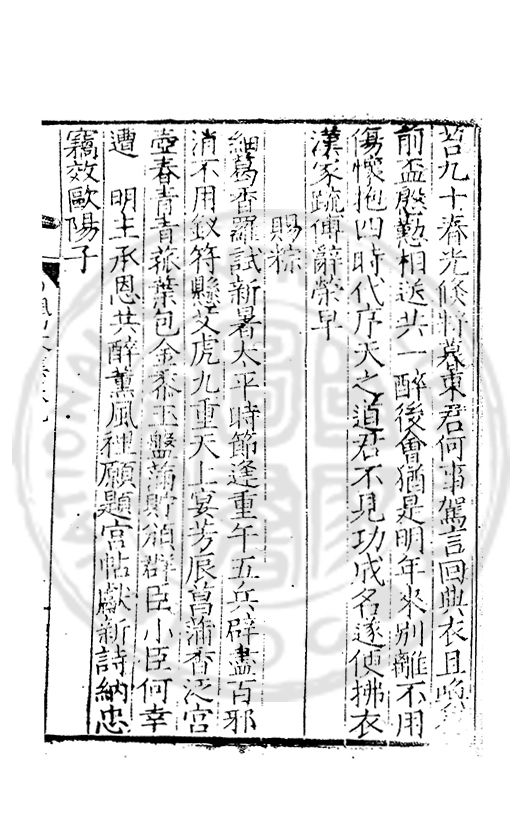 苔九十春光倏將暮東君何事駕言回典衣且喚
前盃慇懃相送共一醉後會猶是明年來別離不用
傷懷抱四時代序天之道君不見功成名遂便拂衣
漢家疏傅辭榮早
賜粽
細葛香羅試新暑太平時節逢重午五兵辟盡百邪
消不用釵符懸艾虎九重天上宴芳辰菖蒲香泛宮
壺春青青菰葉包金黍玉盤滿貯頒群臣小臣何幸
遭 明主承恩共醉薰風裡願題宮帖獻新詩納忠
竊效歐陽子